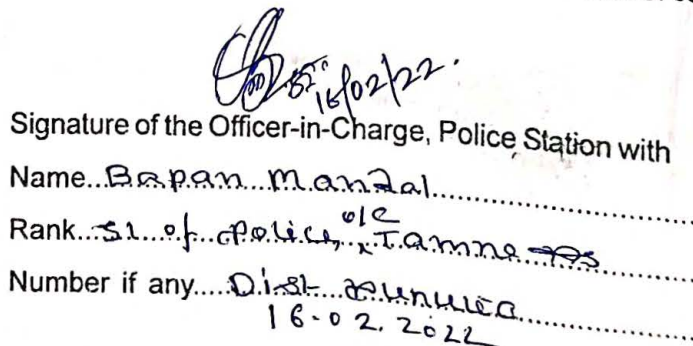 16/02/22.
Signature of the Officer-in-Charge, Police Station with
Name...Bapan Mandal...
o/c
Rank...SI of Police, x Tamna PS
Number if any.....Dist- Purulia
16.02.2022